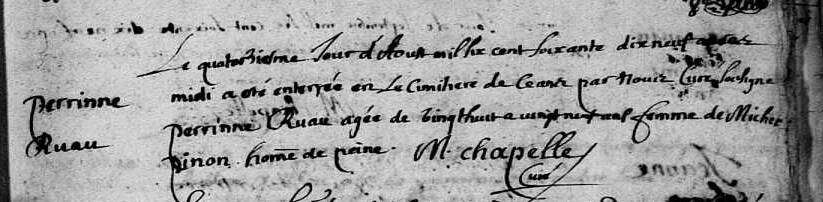 Le quatorziesme Jour d'Aoust mil six cent soixante dix neuf apres
midi a eté enterrée en Le Cimitiere de Ceans par Nous Curé soussigné
perrinne
perrinne Ruau agée de vingthuit a vingt neuf ans femme de Michel
Ruau
pinon. home de peine. M. chapelle
Curé